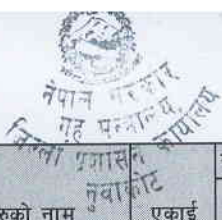 नेपाल सरकार
गृह मन्त्रालय
जिल्ला प्रशासन कार्यालय
नुवाकोट
रुको नाम
एकाई